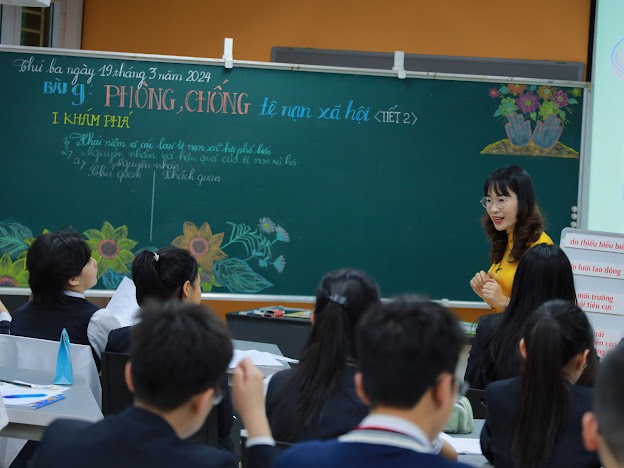 Thứ ba ngày 19 tháng 3 năm 2024
BÀI 9: PHÒNG, CHỐNG tệ nạn xã hội <TIẾT 2>
I KHÁM PHÁ
1/ Khái niệm và các loại tệ nạn xã hội phổ biến
2/ Nguyên nhân và hậu quả của tệ nạn xã hội
a/ Nguyên nhân
Chủ quan Khách quan
do thiếu hiểu biế
lười lao động
môi trường
i tiêu cực